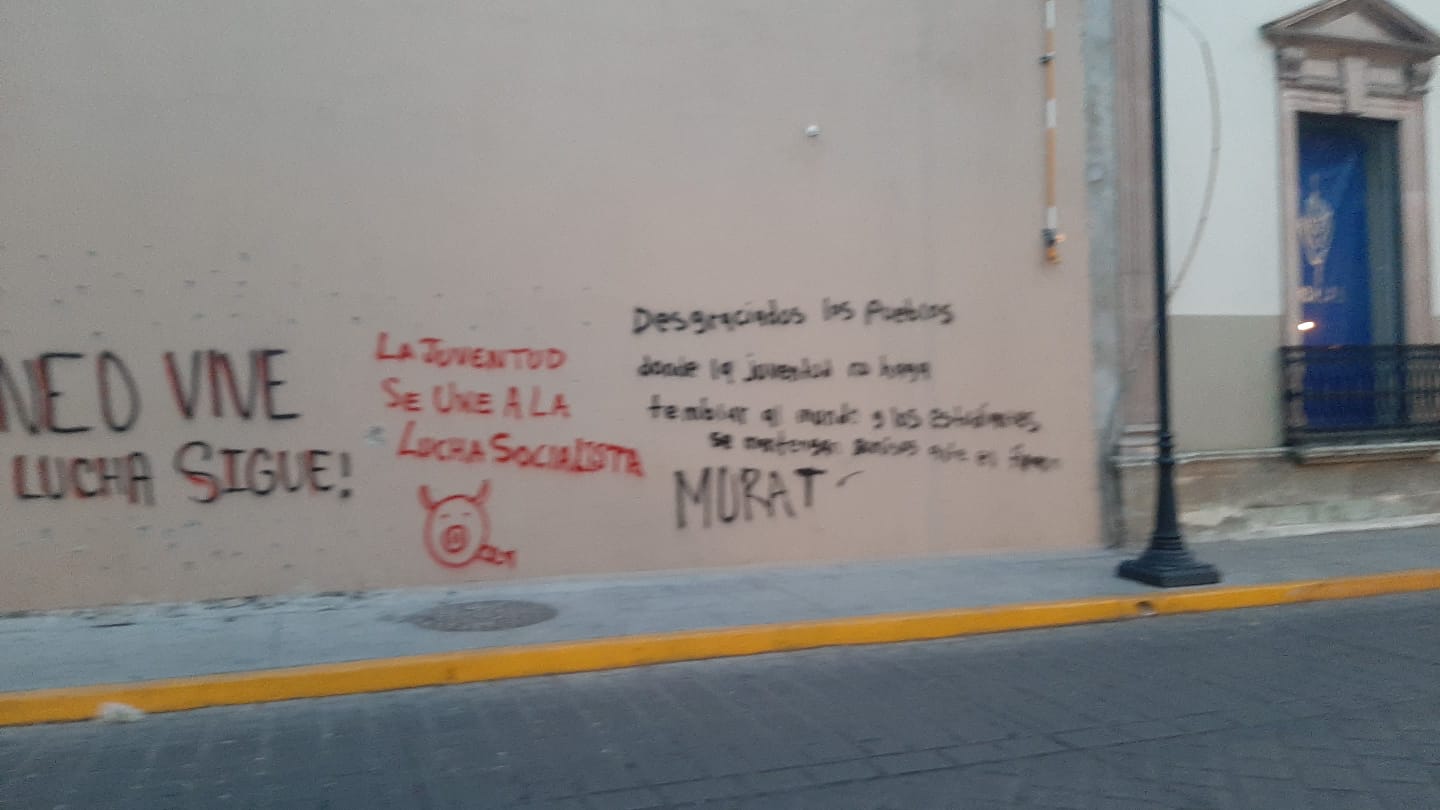 NEO VIVE
LUCHA SIGUE!
LA JUVENTUD
SE UNE A LA
LUCHA SOCIALISTA
Desgraciados los Pueblos
donde la juventud no haga
temblar al mundo y los estudiantes
se mantengan sumisos ante el
MURAT